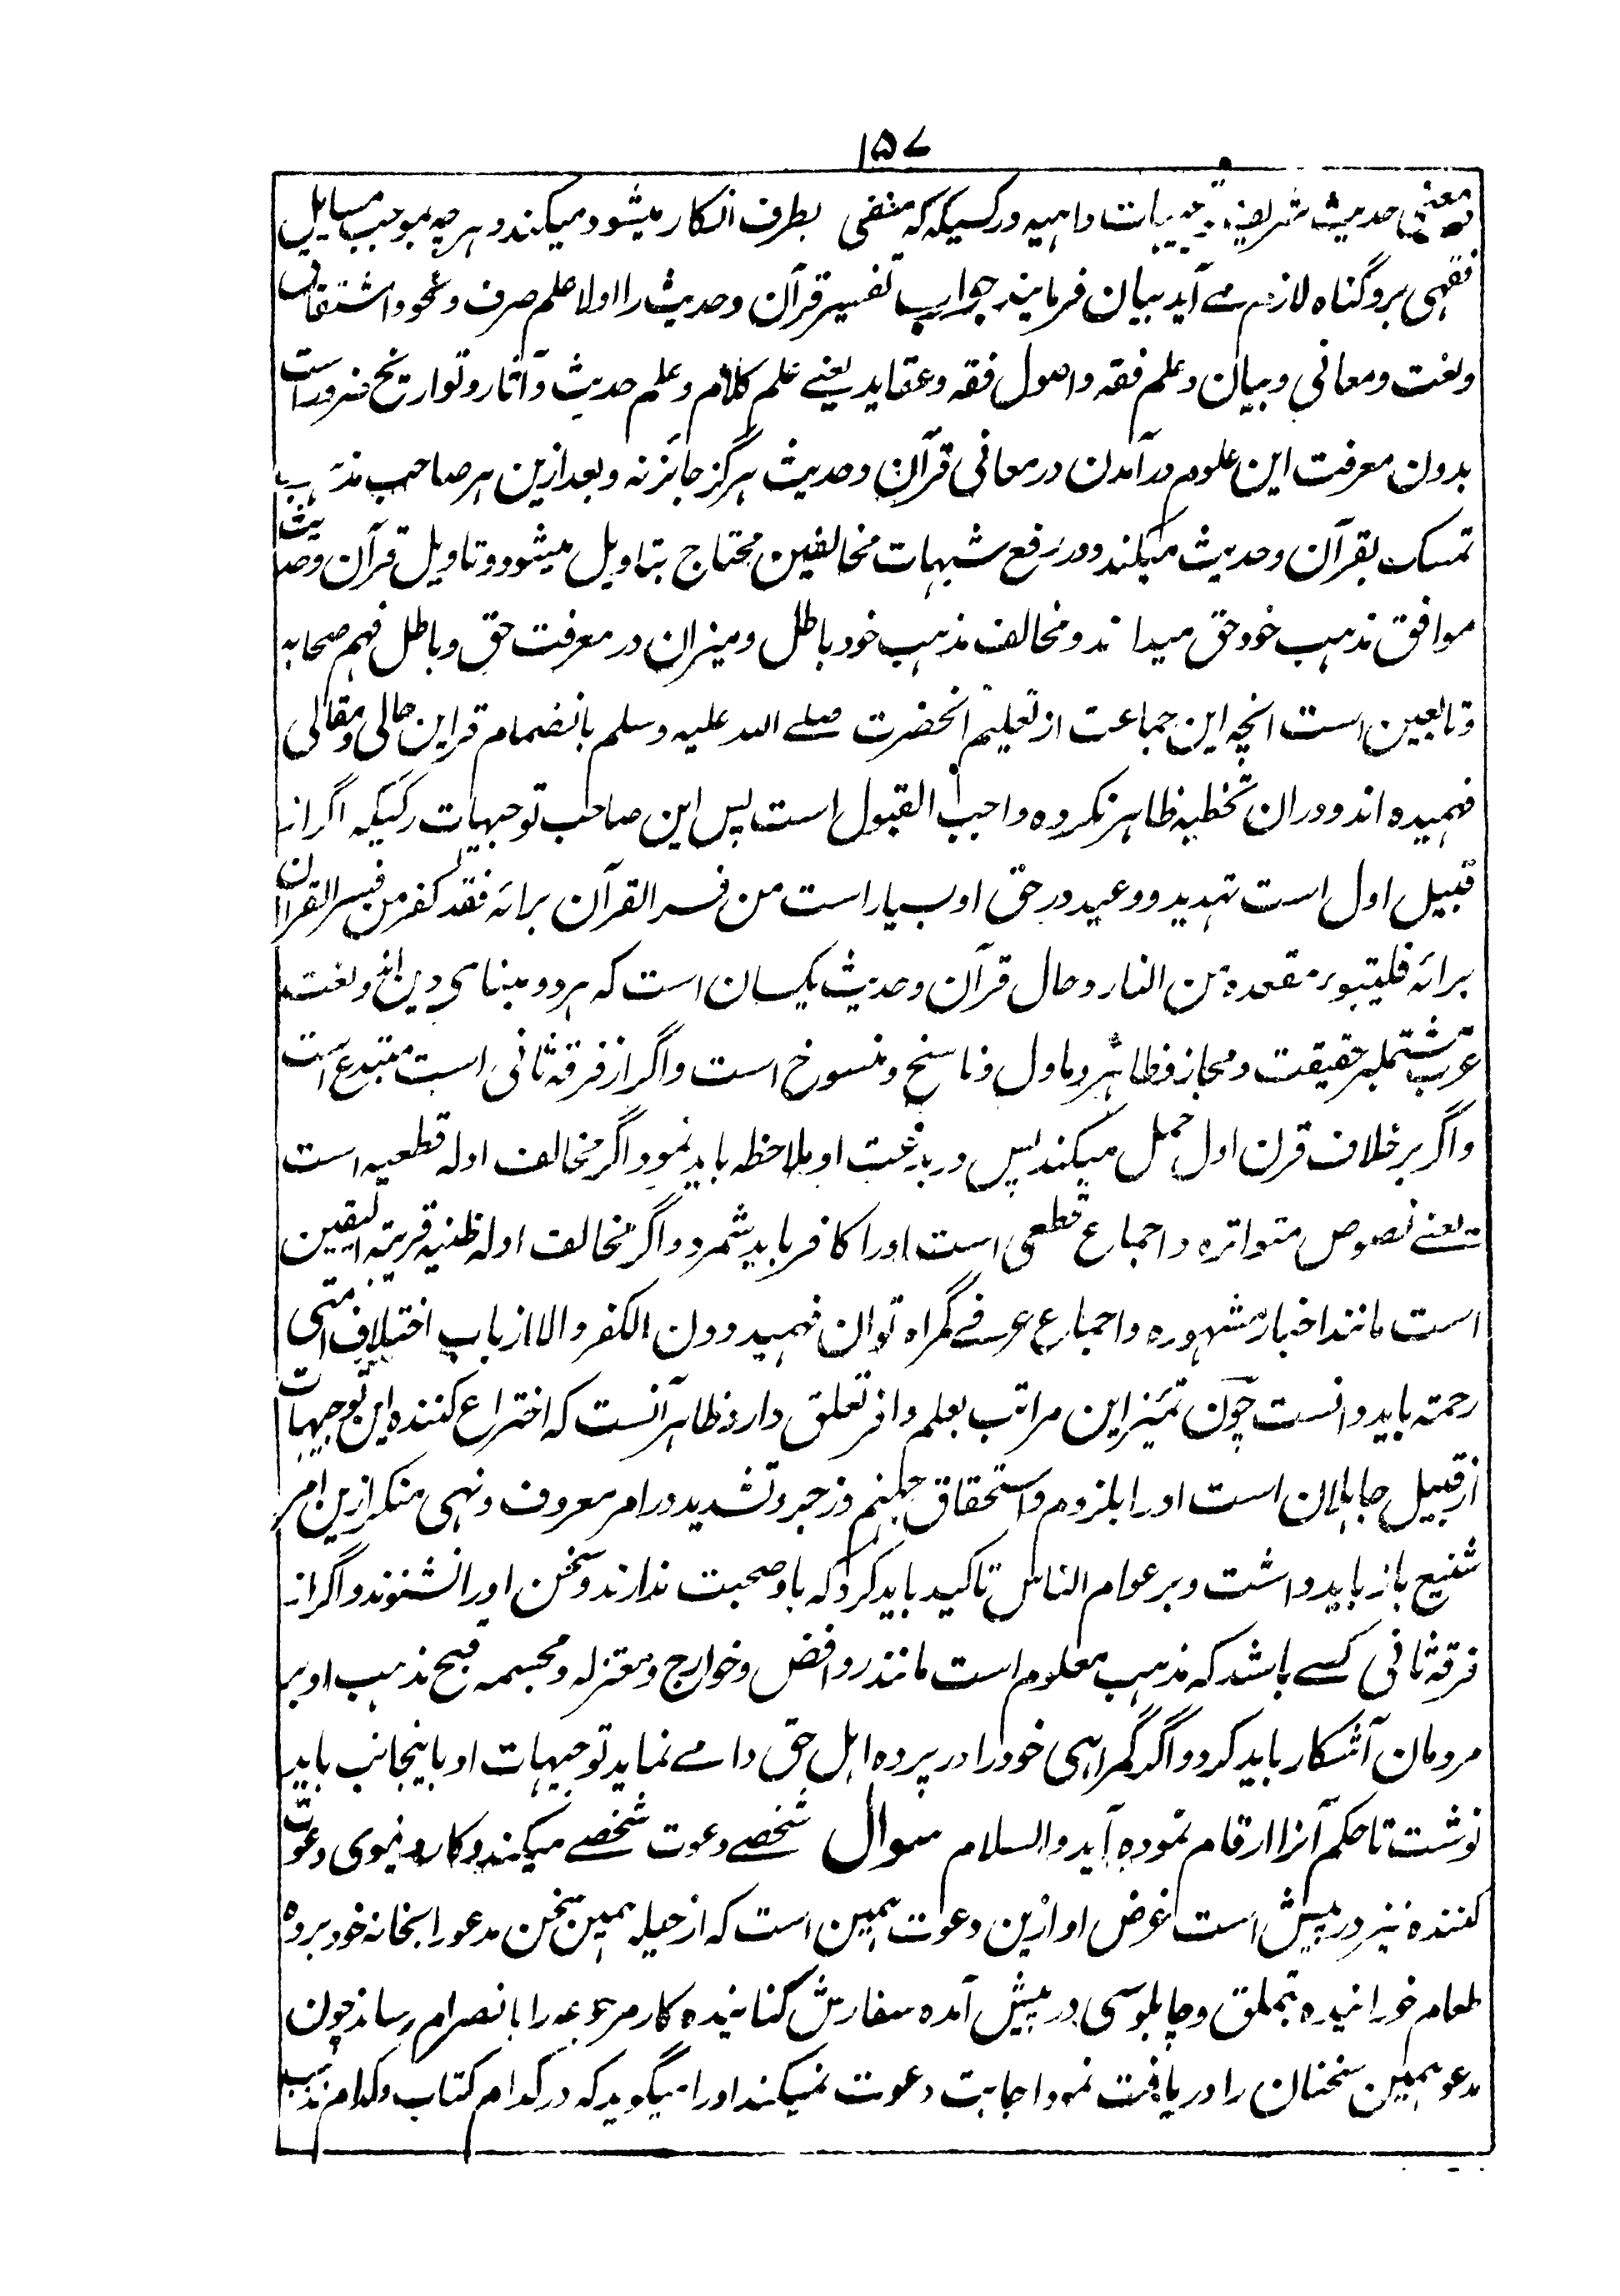 ۱۵۷
معنی حدیث شریف توجیهات واهیه ورکیکه که منفی بطرف انکار میشود میکند و هرچه بموجب مسایل
فقهی برو گناه لازم مے آید بیان فرمایند جواب تفسیر قرآن وحدیث را اولا علم صرف ونحو واشتقاق
ولغت ومعانی وبیان وعلم فقه واصول فقه وعقاید یعنے علم کلام وعلم حدیث وآثار وتواریخ ضروراست
بدون معرفت این علوم درآمدن در معانی قرآن وحدیث هرگز جایز نه وبعد ازین هر صاحب مذهب
تمسک بقرآن وحدیث میکند ودر رفع شبهات مخالفین محتاج بتاویل میشود وتاویل قرآن وحدیث
موافق مذهب خود حق میداند ومخالف مذهب خود باطل ومیزان در معرفت حق وباطل فهم صحابه
وتابعین است انچه این جماعت از تعلیم آنحضرت صلے الله علیه وسلم بانضمام قراین حالی ومقالی
فهمیده اند ودران تخطیه ظاهر نکرده واجب القبول است پس این صاحب توجیهات رکیکه اگر از
قبیل اول است تهدید ووعید در حق او بسیار است من فسر القرآن برائه فقد کفر من فسر القرآن
برائه فلیتبوء مقعده من النار وحال قرآن وحدیث یکسان است که هر دو مبنای دین اند ولغت
عرب مشتمل بر حقیقت ومجاز وظاهر وماول وناسخ ومنسوخ است واگر از فرقه ثانی است مبتدع است
واگر بر خلاف قرن اول حمل میکند پس در بدعت او ملاحظه باید نمود اگر مخالف ادله قطعیه است
یعنے نصوص متواتره واجماع قطعی است اورا کافر باید شمرد واگر مخالف ادله ظنیه قریبة الیقین
است مانند اخبار مشهوره واجماع عرفے گمراه توان فهمید ودون الکفر والا از باب اختلاف امتی
رحمة باید دانست چون تمیز این مراتب بعلم وافر تعلق دارد ظاهر آنست که اختراع کننده این توجیهات
از قبیل جاهلان است اورا بلزوم واستحقاق جهنم وزجر وتشدید در امر معروف ونهی منکر ازین امر
شنیع باز باید داشت وبر عوام الناس تاکید باید کرد که باو صحبت ندارند وسخن اورا نشنوند واگر از
فرقه ثانی کسے باشد که مذهب معلوم است مانند روافض وخوارج ومعتزله ومجسمه قبح مذهب او بر
مردمان آشکار باید کرد واگر گمراهی خود را در پرده اهل حق وا مے نماید توجیهات او باینجانب باید
نوشت تا حکم آنرا ارقام نموده آید والسلام سوال شخصے دعوت شخصے میکند وکار دنیوی دعوت
کننده نیز در پیش است غرض او ازین دعوت همین است که از حیله همین سخن مدعو را بخانه خود برده
طعام خورانیده بتملق وچاپلوسی در پیش آمده سفارش کنانیده کار مرجوعه را بانصرام رساند چون
مدعو همین سخنان را دریافت نمود اجابت دعوت نمیکند اورا میگوید که در کدام کتاب وکدام مذهب